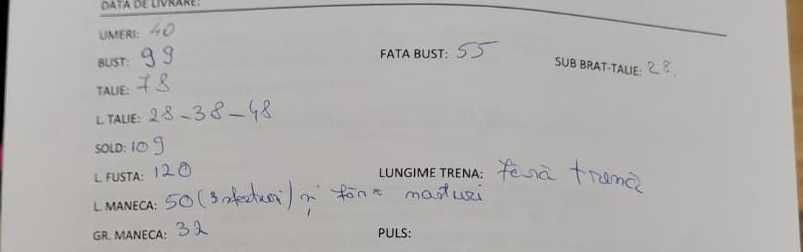 DATA DE LIVRARE:
UMERI: 40
BUST: 99 FATA BUST: 55 SUB BRAT-TALIE: 28.
TALIE: 78
L. TALIE: 28-38-48
SOLD: 109
L. FUSTA: 120 LUNGIME TRENA: fără trenă
L. MANECA: 50 (3 sferturi) și fără nasturi
GR. MANECA: 32 PULS: